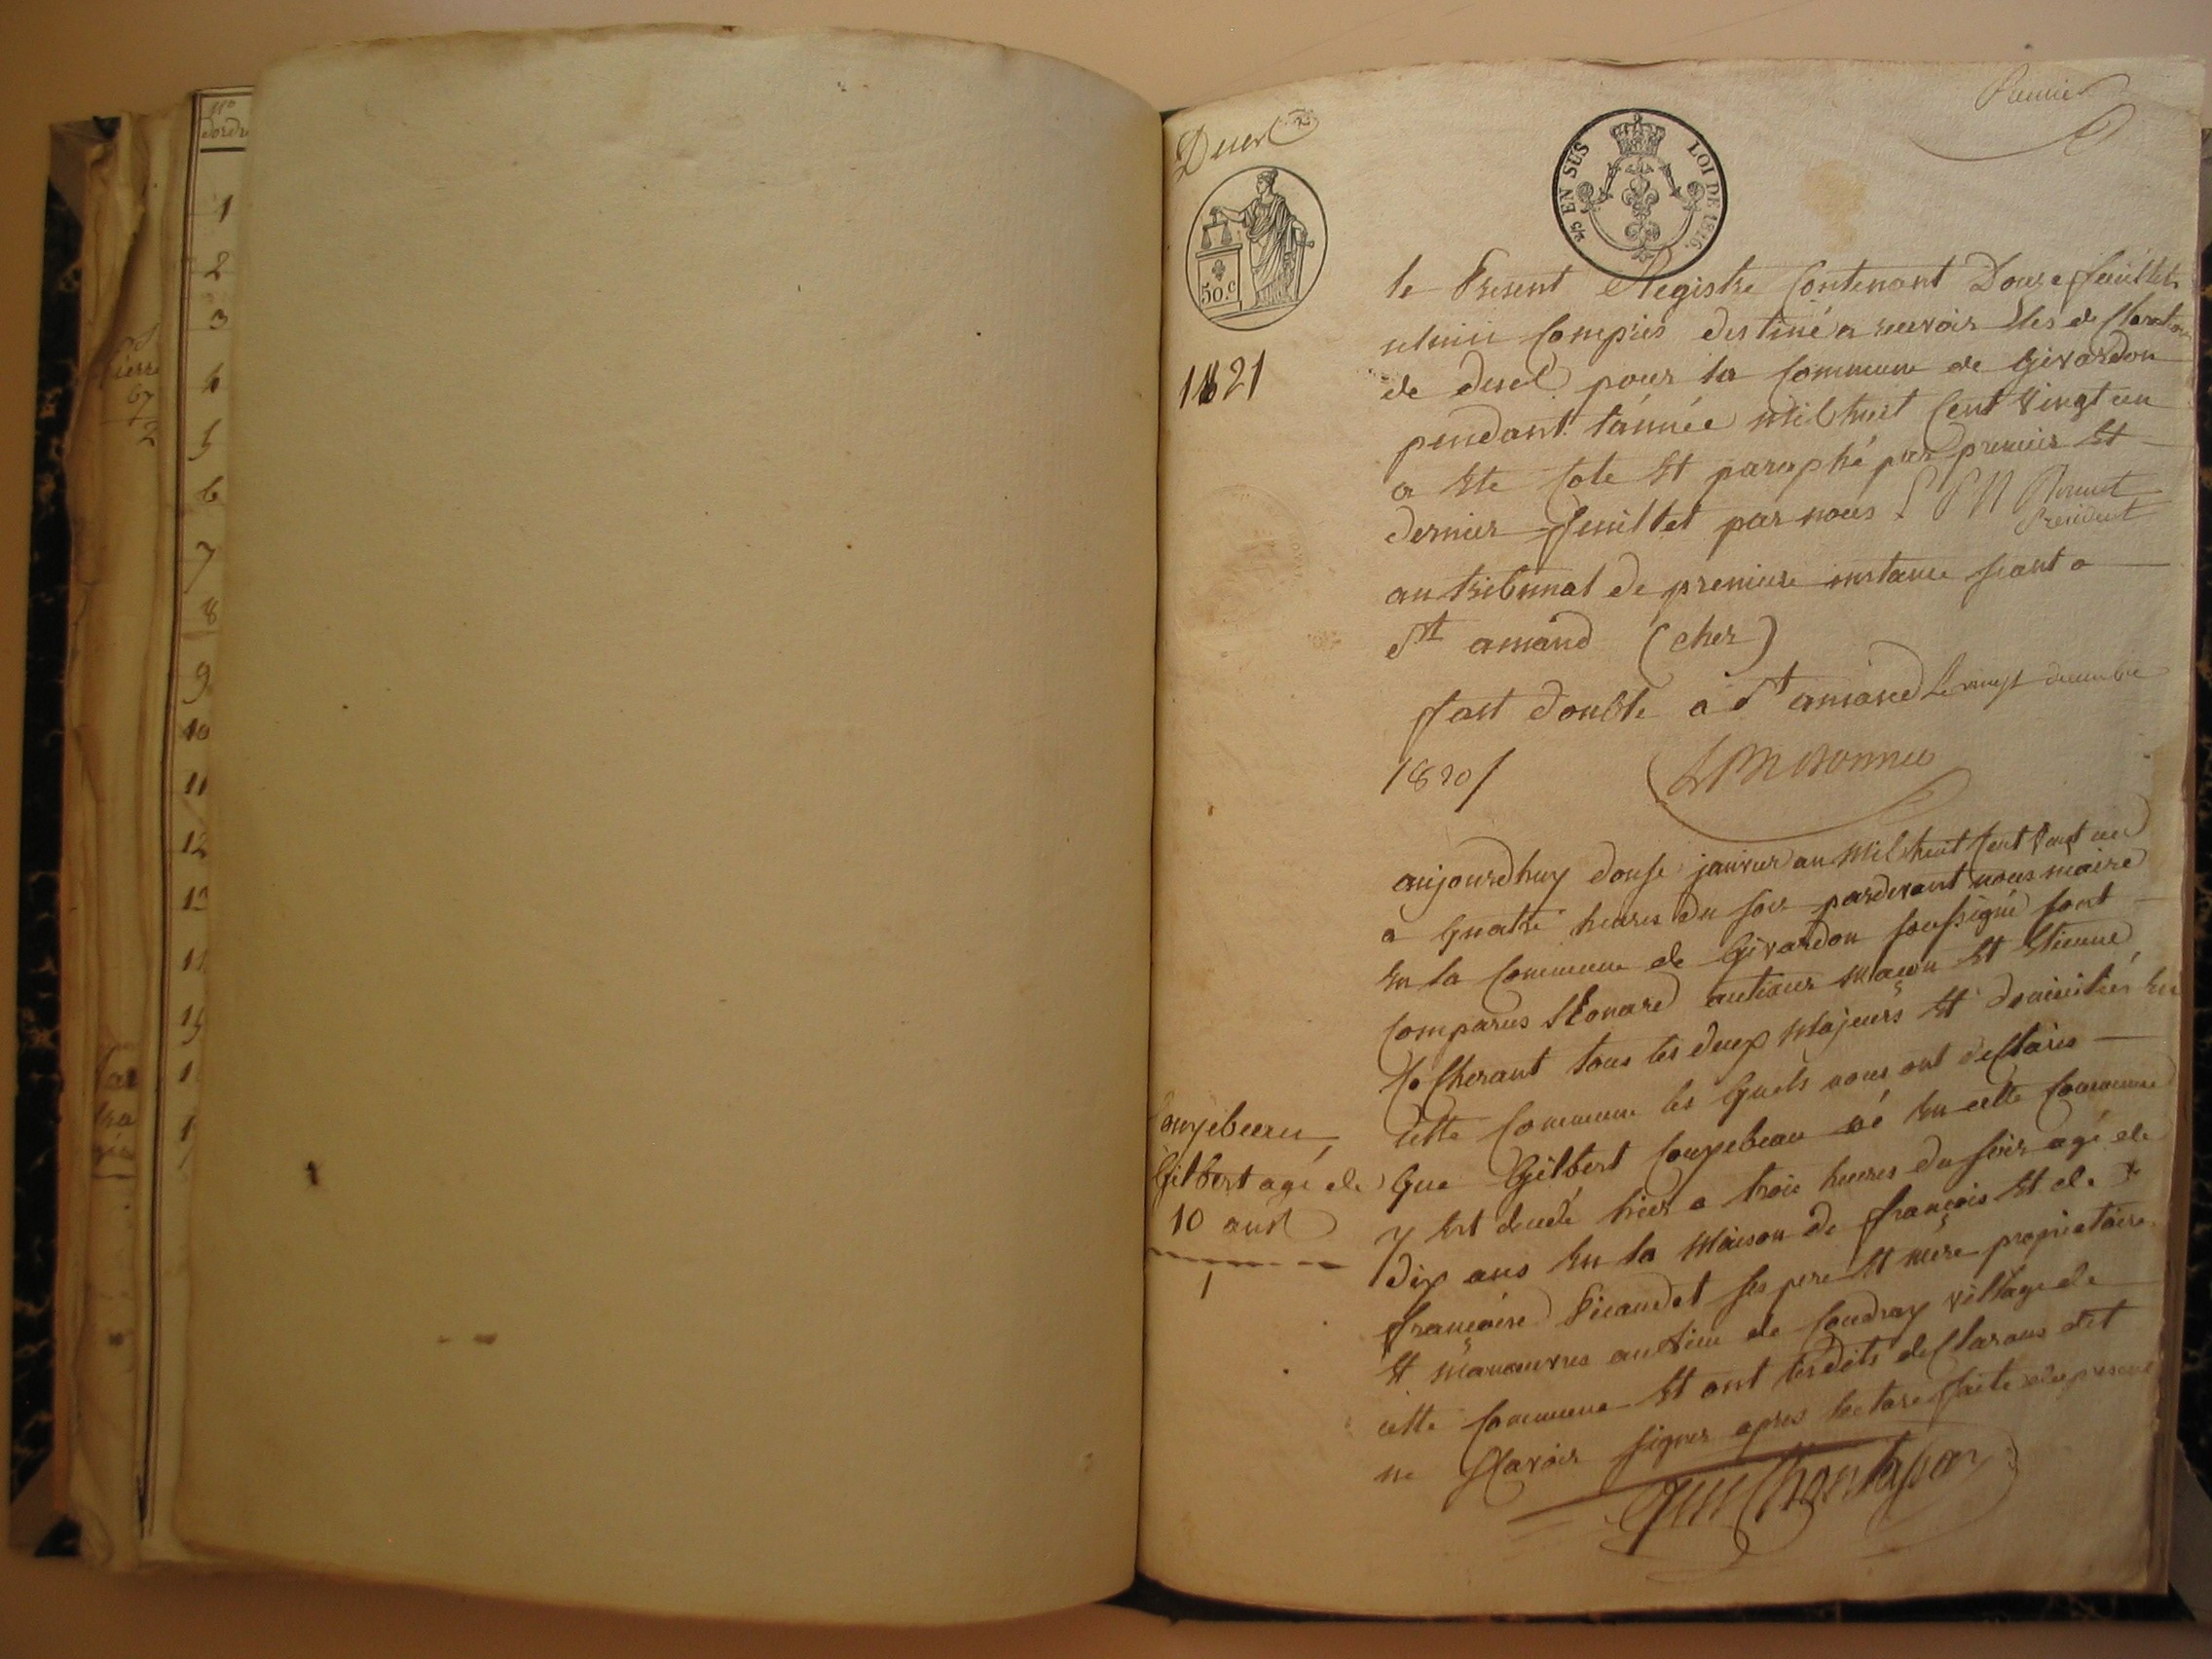 No
dordre
1
2
3
4
5
6
7
8
9
10
11
12
13
Premier
Deces
EN SUS
LOI DE 1816.
50.c
1821
le Present Registre Contenant Douze feuillets
celuici Compris destiné a recevoir les declarations
de deces pour la Commune de Givardon
pendant l'année mil huit Cent Vingt un
a Ete Cote Et paraphé par premier Et
dernier feuillet par nous
President
au tribunal de premiere instance seant a
St amand (cher)
fait double a St amand Le vingt decembre
1820
aujourdhuy douse janvier an Mil huit Cent Vingt un
a Quatre heures du soir pardevant nous maire
En la Commune de Givardon soussigné sont
Comparus Leonard autiour Maçon Et Etienne
tous les deux Majeurs Et domiciliés En
Cette Commune les Quels nous ont declarés
Que Gilbert Coupebeau né En cette Commune
y Est decedé hier a trois heures du soir agé de
dix ans En la Maison de françois Et de
françoise Picaudet ses pere Et mere proprietaire
Et Manoeuvres au lieu de Coudray village de
cette Commune Et ont lesdits declarans dit
ne Scavoir signer apres lecture faite du present
Coupebeau
Gilbert agé de
10 ans
1